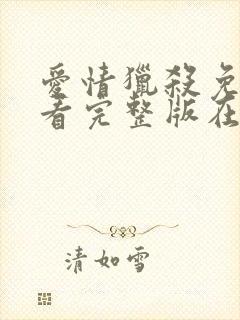 愛情獵殺免
看完整版在
清如雪